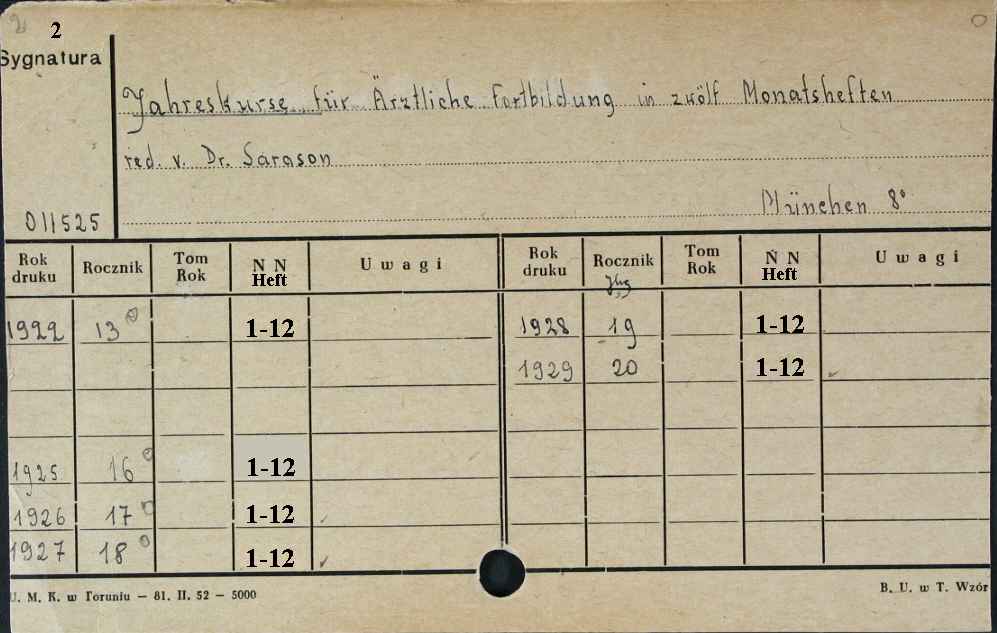 2
Sygnatura
Jahreskurse für Ärztliche Fortbildung in zwölf Monatsheften
red. v. Dr. Sarason
München 8°
011525
Rok druku Rocznik Tom Rok N N Heft Uwagi Rok druku Rocznik Jhg Tom Rok N N Heft Uwagi
1922 13 1-12 1928 19 1-12
1929 20 1-12
1925 16 1-12
1926 17 1-12
1927 18 1-12
U. M. K. w Toruniu — 81. II. 52 — 5000 B. U. w T. Wzór